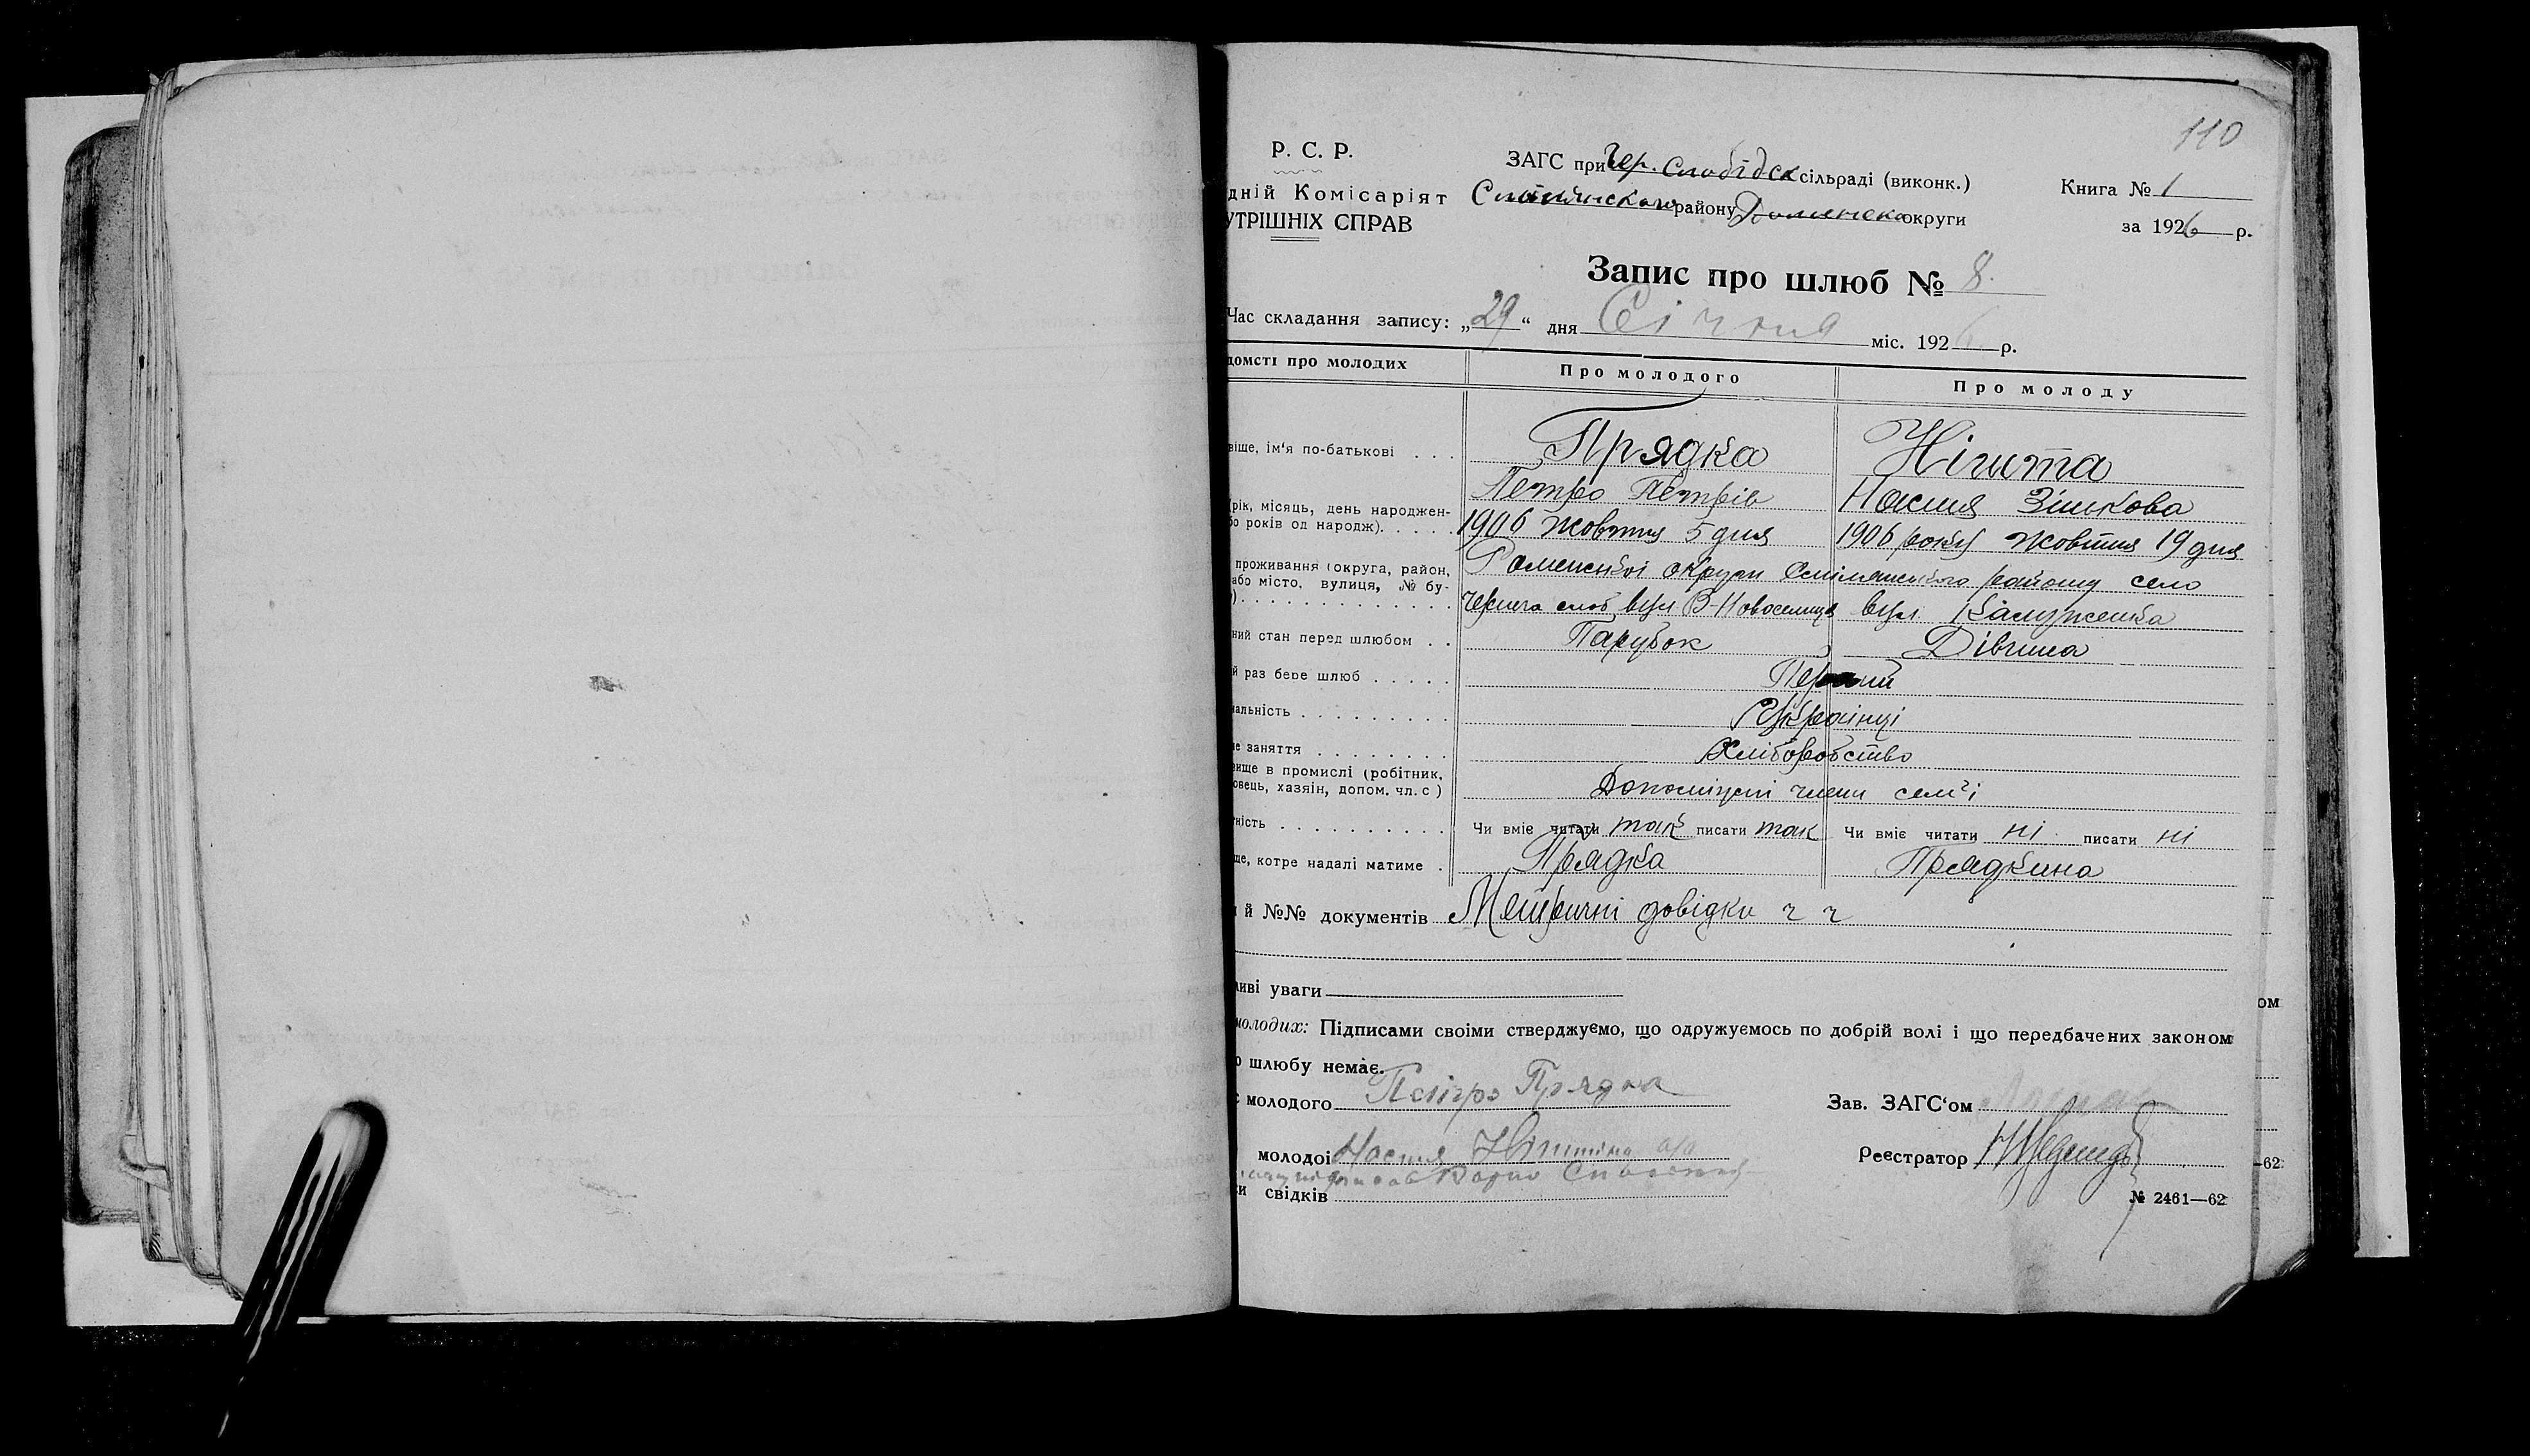 110
Р. С. Р.
ЗАГС при Чер. Слобідск сільраді (виконк.)
Книга № 1
дній Комісаріят
району Роменско округи
УТРІШНІХ СПРАВ
за 1926 р.
Запис про шлюб № 8.
Час складання запису: „29“ дня Січня міс. 1926 р.
домсті про молодих
Про молодого
Про молоду
віще, ім'я по-батькові . . .
Прядка
Петро Петрів
Настя Зінькова
рік, місяць, день народжен-
бо років од народж). . . . .
1906 жовтня 5 дня
1906 року жовтня 19 дня
проживання (округа, район,
або місто, вулиця, № бу-
). . . . . . . . . . . . . .
Роменської округи району село
слоб вул В-Новоселиця вул Калюженка
ний стан перед шлюбом . .
Парубок
Дівчина
й раз бере шлюб . . . . .
Перший
альність . . . . . . . . .
Українці
не заняття . . . . . . . .
Хліборобство
вище в промислі (робітник,
овець, хазяін, допом. чл. с )
члени сем'ї
ність . . . . . . . . . .
Чи вміє читати так писати так
Чи вміє читати ні писати ні
ще, котре надалі матиме .
Прядка
Прядкина
й №№ документів Метричні довідки ч ч
ливі уваги
молодих: Підписами своіми стверджуємо, що одружуємось по добрій волі і що передбачених законом
о шлюбу немає.
с молодого Петро Прядка
Зав. ЗАГС'ом
молодоі Настя
Реєстратор
и свідків
№ 2461—62
ом
—62